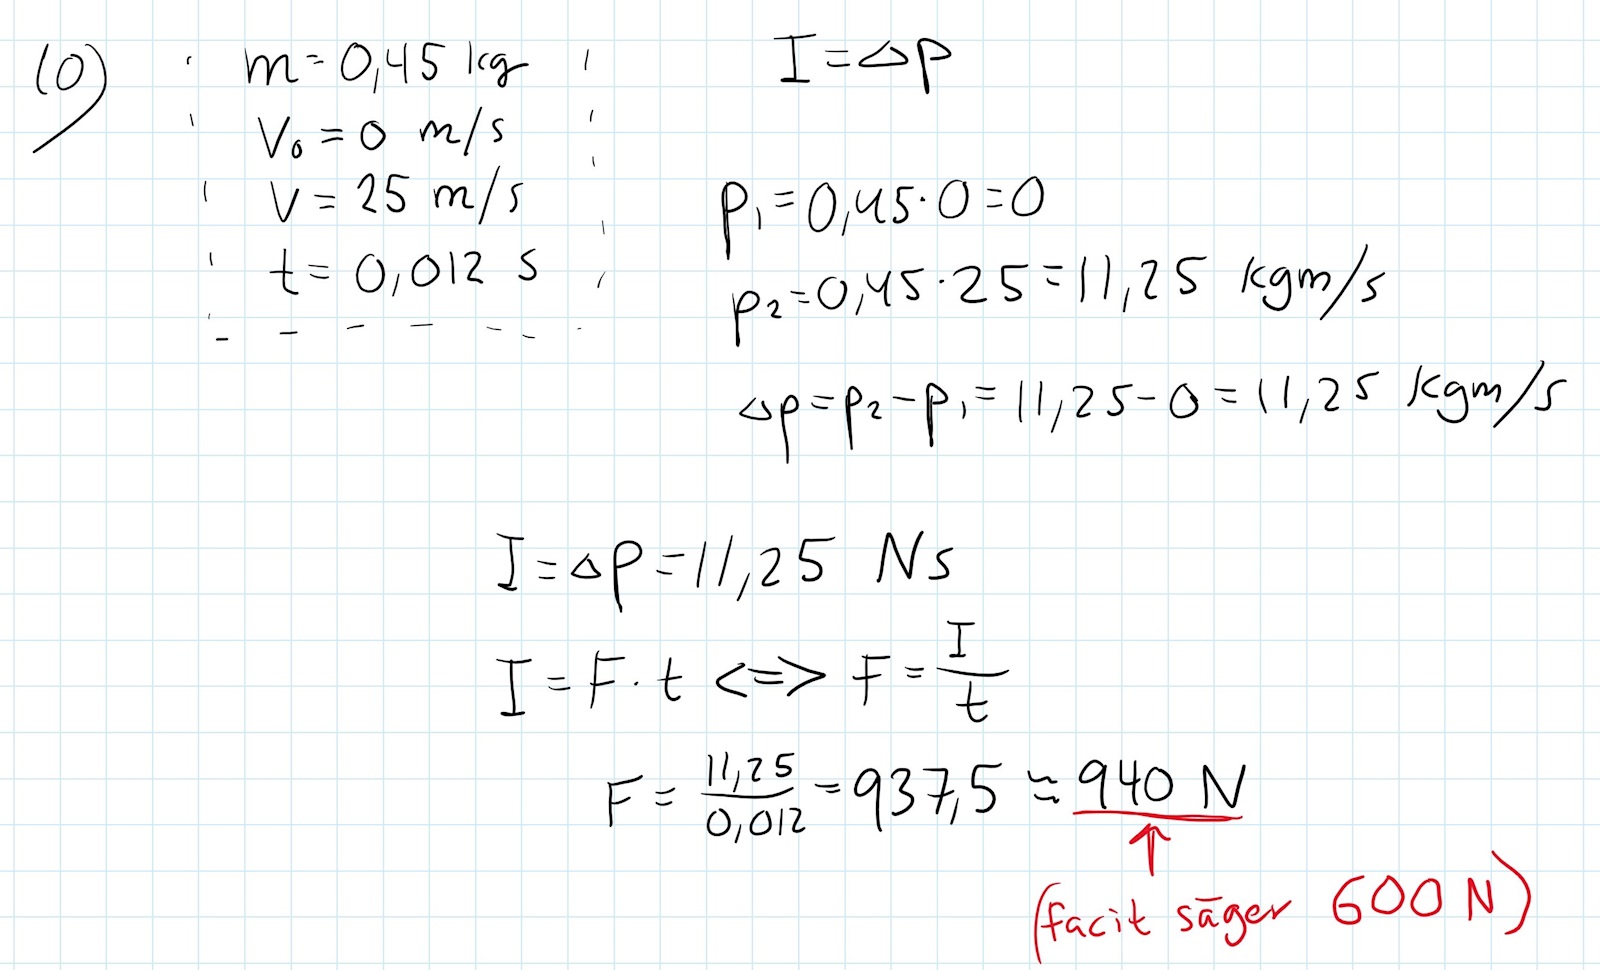 10)
m=0,45 kg
V₀=0 m/s
V=25 m/s
t=0,012 s
I=△p
p₁=0,45·0=0
p₂=0,45·25=11,25 kgm/s
△p=p₂-p₁=11,25-0=11,25 kgm/s
I=△p=11,25 Ns
I=F·t <=> F=I/t
F=11,25/0,012=937,5≈940 N
(facit säger 600 N)